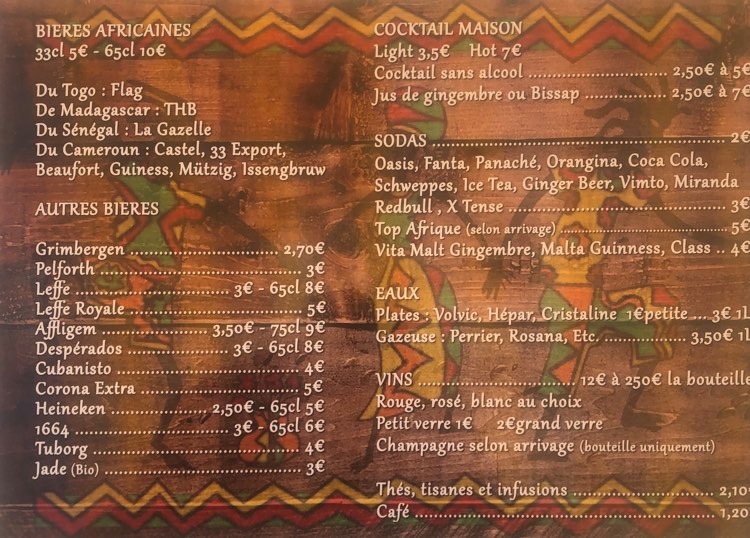 BIERES AFRICAINES
33cl 5€ - 65cl 10€
Du Togo : Flag
De Madagascar : THB
Du Sénégal : La Gazelle
Du Cameroun : Castel, 33 Export,
Beaufort, Guiness, Mützig, Issengbruw
AUTRES BIERES
Grimbergen ................................ 2,70€
Pelforth ........................................ 3€
Leffe ................................ 3€ - 65cl 8€
Leffe Royale .................................. 5€
Affligem ....................... 3,50€ - 75cl 9€
Despérados ..................... 3€ - 65cl 8€
Cubanisto ..................................... 4€
Corona Extra ................................ 5€
Heineken ................... 2,50€ - 65cl 5€
1664 ................................ 3€ - 65cl 6€
Tuborg .......................................... 4€
Jade (Bio) ...................................... 3€
COCKTAIL MAISON
Light 3,5€ Hot 7€
Cocktail sans alcool ............................ 2,50€ à 5€
Jus de gingembre ou Bissap .................. 2,50€ à 7€
SODAS .................................................... 2€
Oasis, Fanta, Panaché, Orangina, Coca Cola,
Schweppes, Ice Tea, Ginger Beer, Vimto, Miranda
Redbull , X Tense ........................................ 3€
Top Afrique (selon arrivage) ................................ 5€
Vita Malt Gingembre, Malta Guinness, Class .. 4€
EAUX
Plates : Volvic, Hépar, Cristaline 1€petite ... 3€ 1L
Gazeuse : Perrier, Rosana, Etc. ................... 3,50€ 1L
VINS ................................ 12€ à 250€ la bouteille
Rouge, rosé, blanc au choix
Petit verre 1€ 2€grand verre
Champagne selon arrivage (bouteille uniquement)
Thés, tisanes et infusions ............................ 2,10
Café .......................................................... 1,20